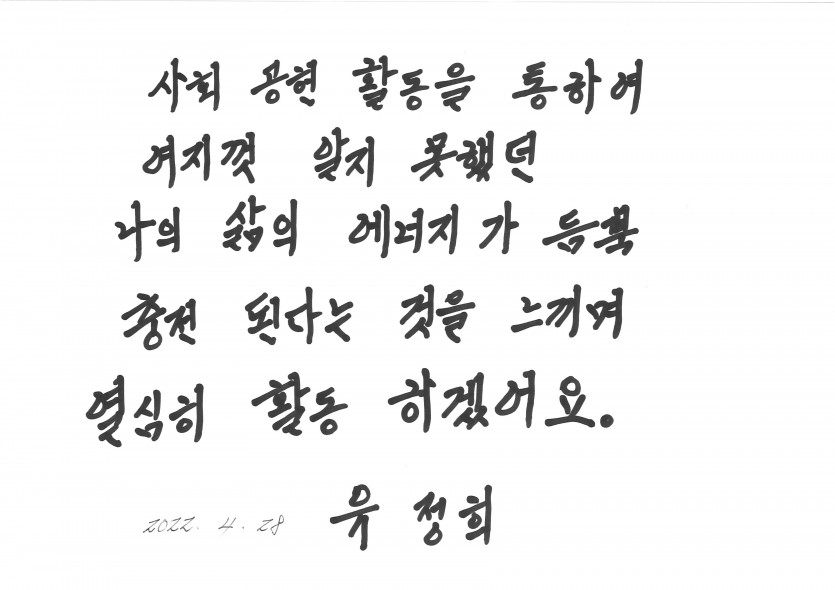 사회 공헌 활동을 통하여
여지껏 알지 못했던
나의 삶의 에너지가 듬뿍
충전 된다는 것을 느끼며
열심히 활동 하겠어요.
2022. 4. 28 유 정희